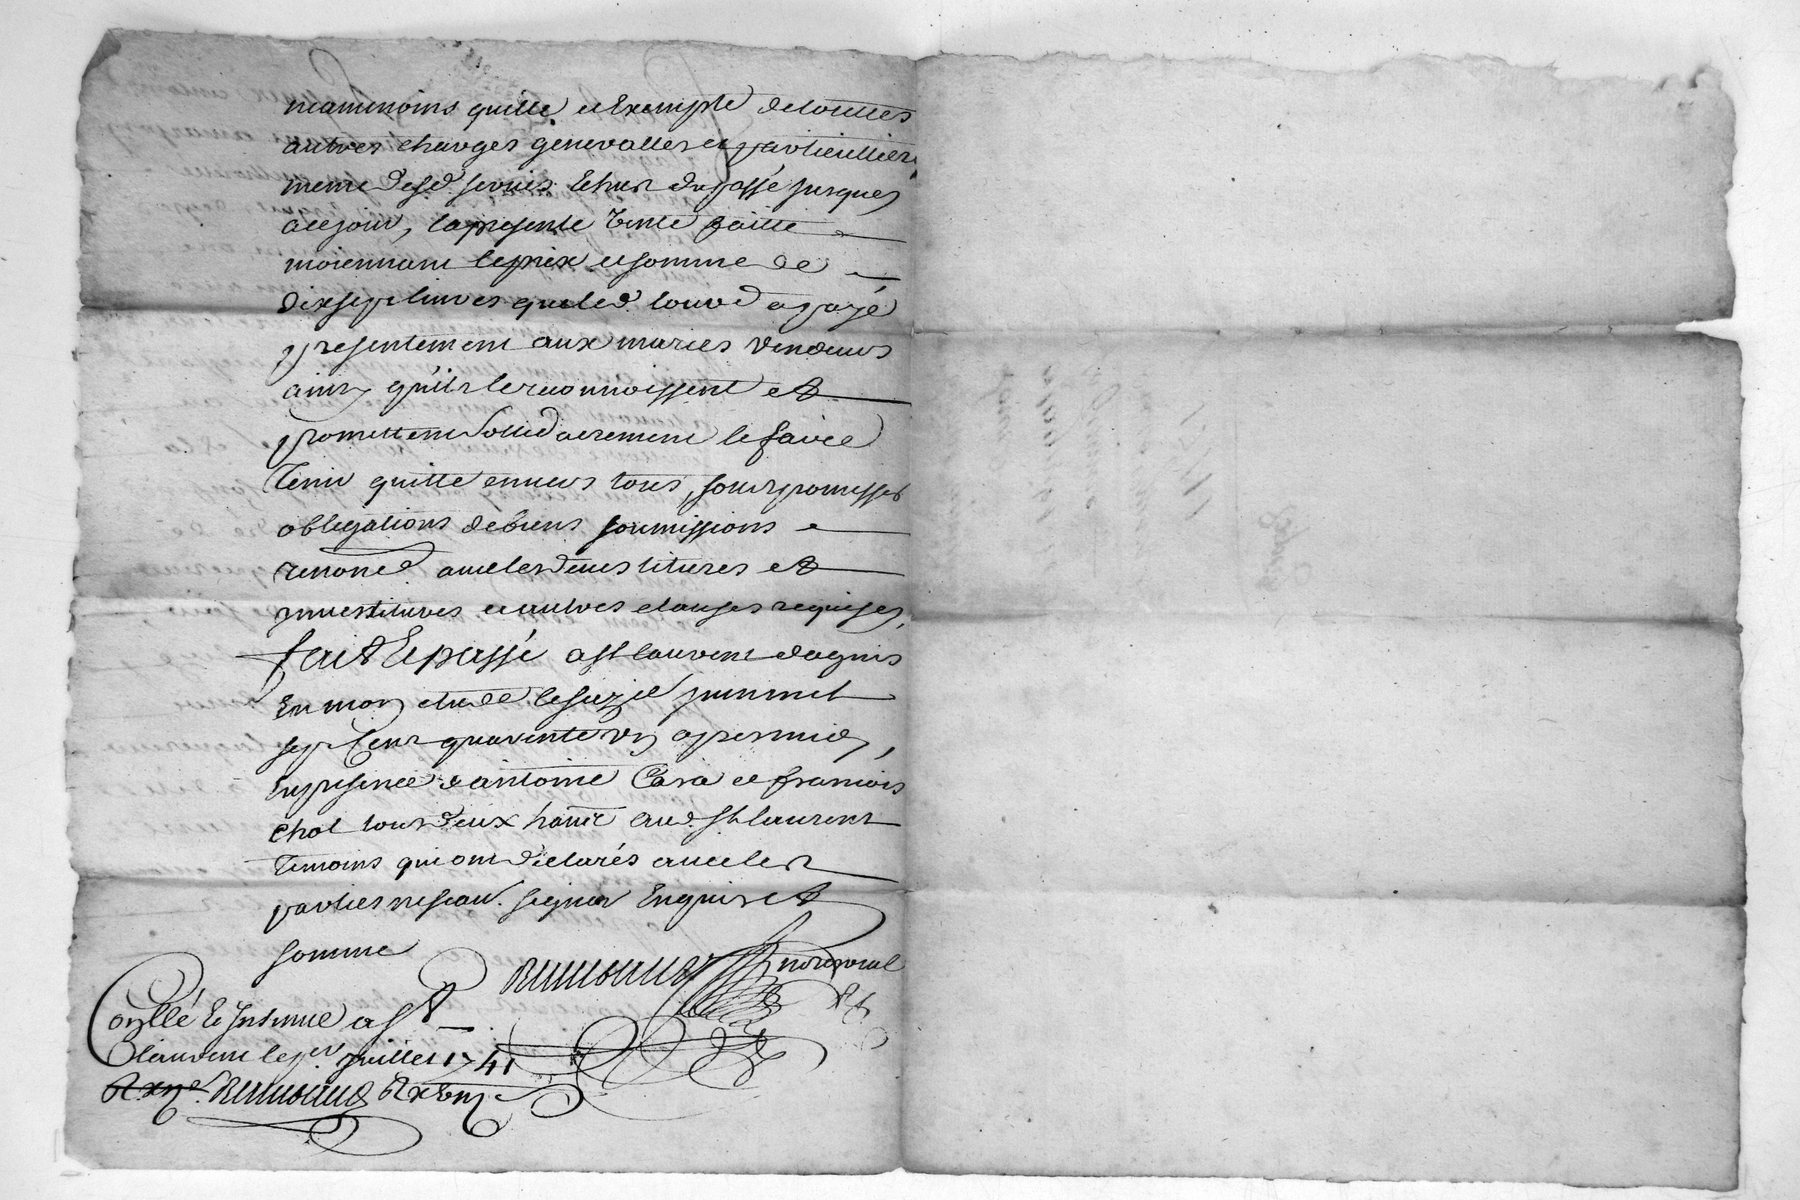 neammoins quitte et Exempte detouttes
autres charges generalles et particuilliers
meme desd. servis Echus du passé jusques
acejour, la presente vente faitte
moiennant le prix et somme de
dixsept livres que led. louve a payé
presentement aux mariés vendeurs
ainsy qu'ils le reconnoissent et
promettent sollidairement le faire
tenir quitte envers tous, sous promesses
obligations de biens soumissions
renonc. avec les devestitures et
jnvestitures et autres clauses requises,
fait Et passé a st laurent dagnis
En mon etude le seize juin mil
sept Cent quarente un apres midy,
En presence d'antoine Cara et francois
chol tous deux habit. aud. st laurent
temoins qui ont declarés avec les
parties ne scav. signer Enquis et
sommé
Conllé Et Insinué a St
laurent le per juillet 1741